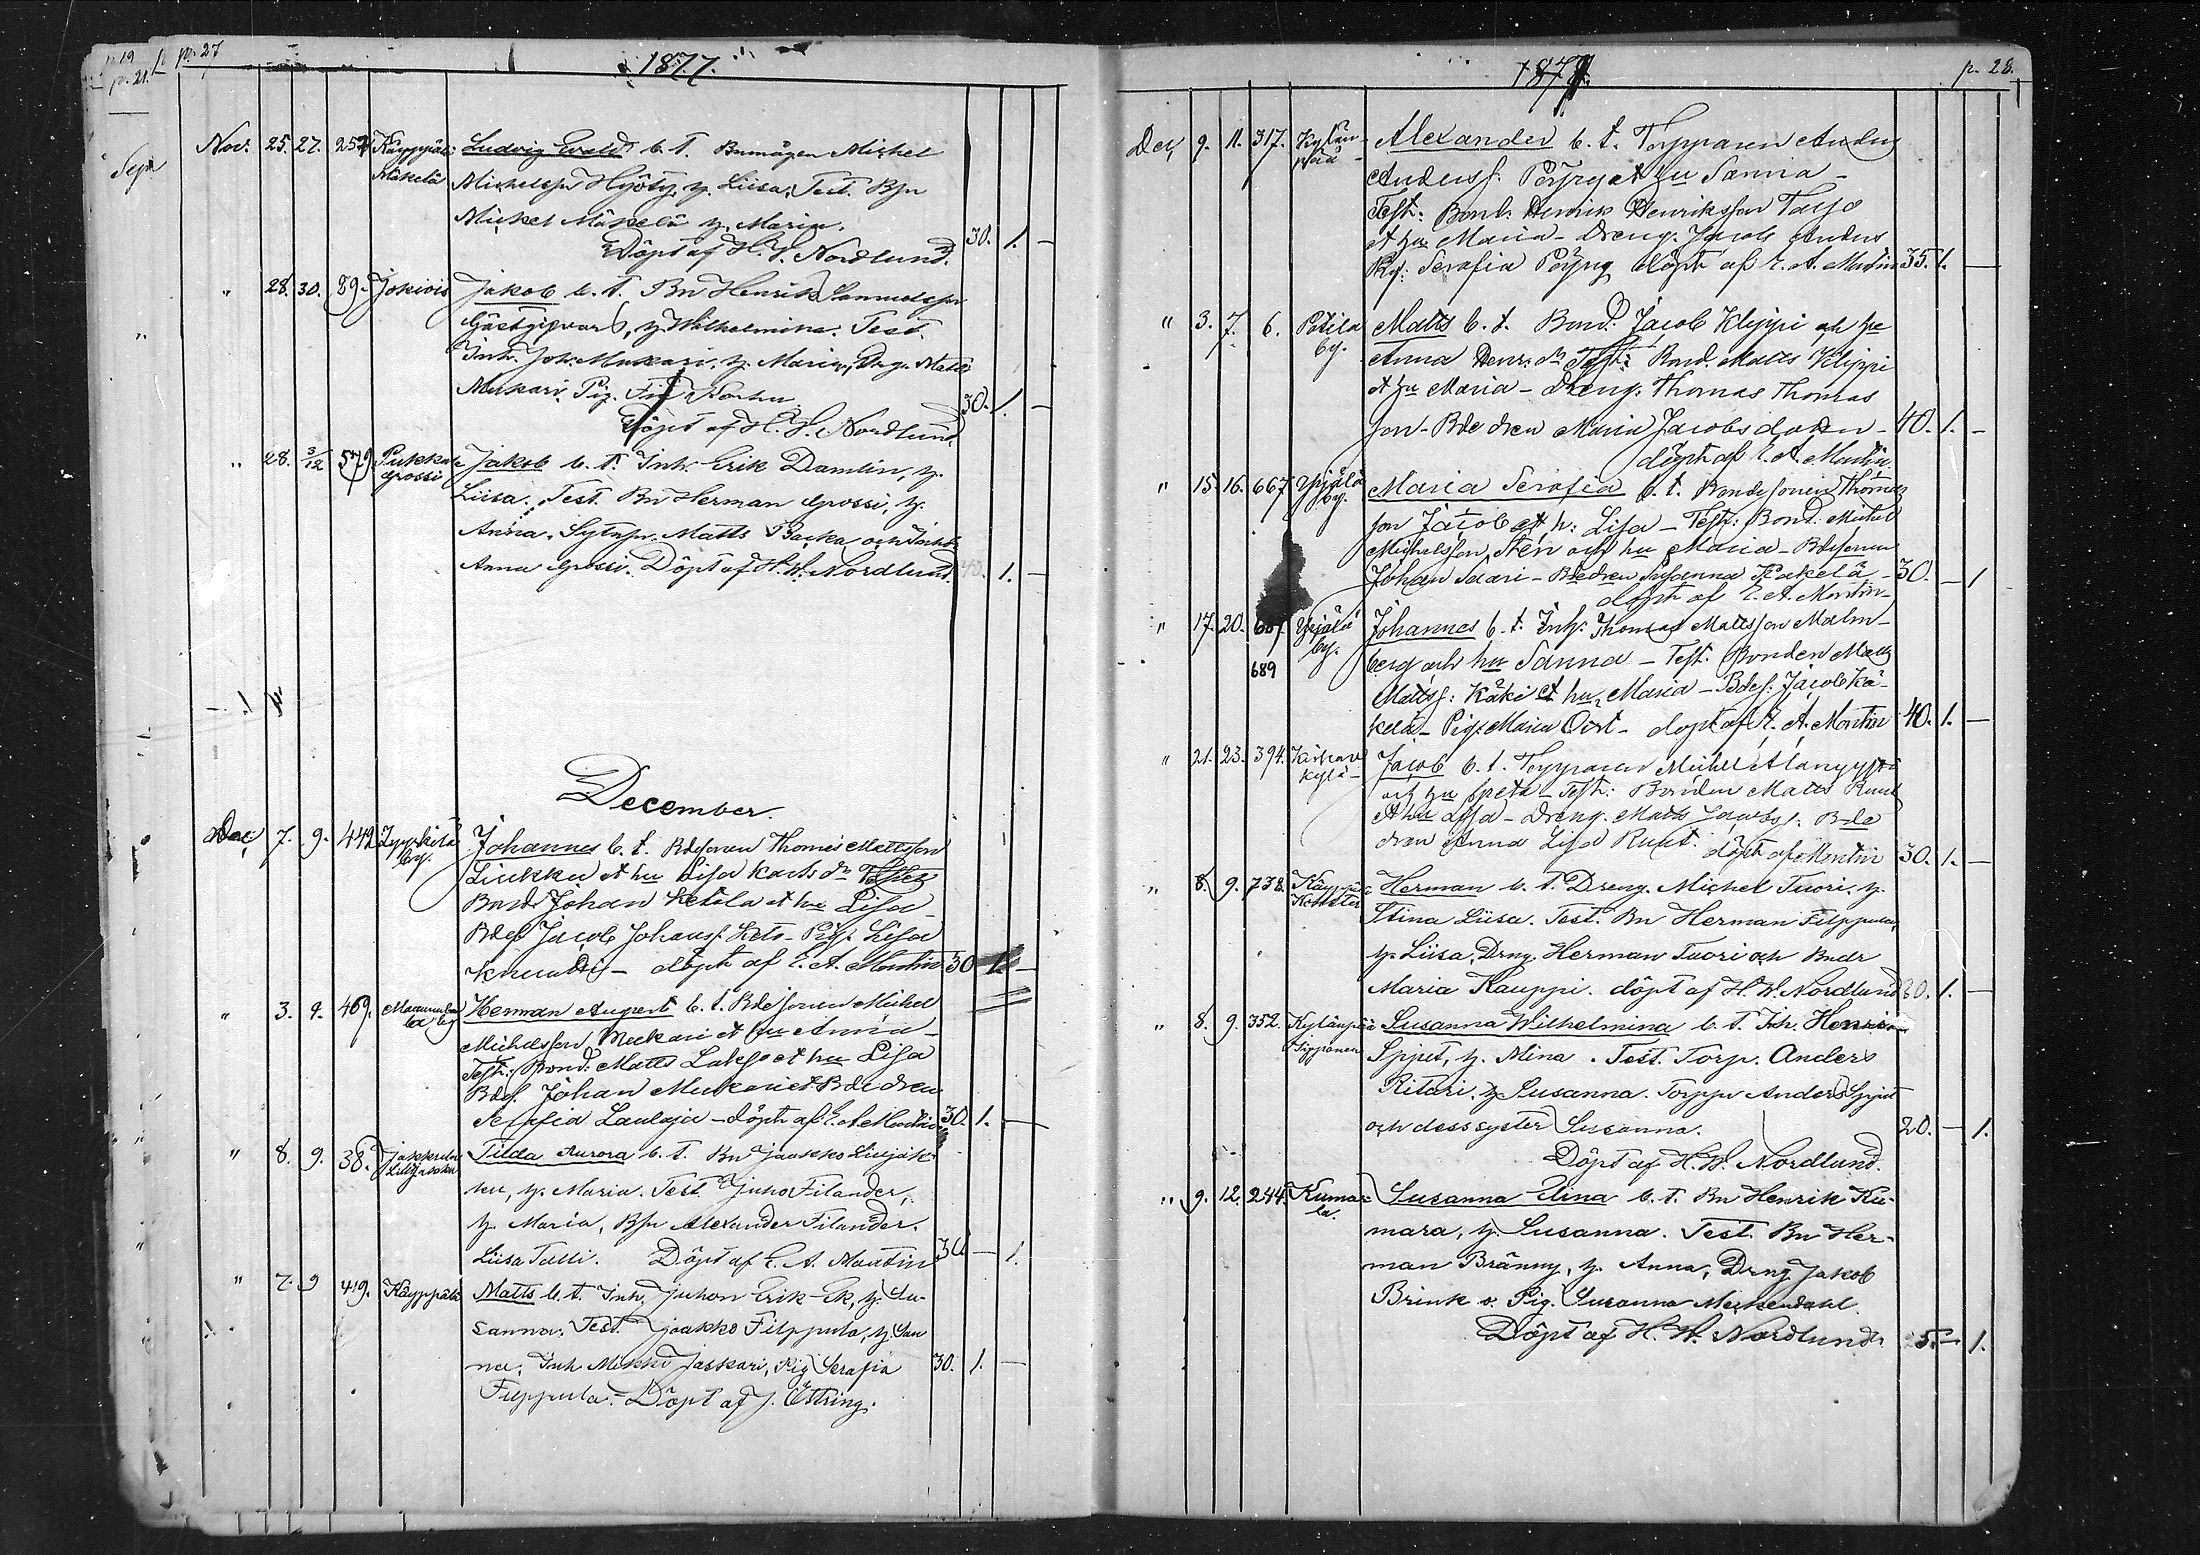 p. 27
1877.
Nov. 25. 27. 252 Käyppälä Ludvig Evald b. t. Bnmågen Michel
Mäkelä Michelsson Hyöty, h. Liisa, Test. Bsn
Mickel Mäkelä h. Maria.
Döpt af H. W. Nordlund. 30. 1. —
" 28. 30. 89. Jokiois Jakob b. t. Bn Henrik Samuelsson
Gästgifvars, h. Wilhelmina. Test.
Inh. Joh. Mukari, h. Maria, Drg. Matts
Mukari, Pig. Fia
30. 1. —
Döpt af H. W. Nordlund
" 28. 3/12 579 Pukkala Jakob b. t. Inh. Erik Damlin, h.
Grossi Liisa. Test. Bn Herman Grossi, h.
Anna. Sytnsn. Matts Backa och
Anna Grossi. Döpt af H. W. Nordlund. 1. —
December.
Dec. 7. 9. 442 Ypyskylä Johannes b. t. Bdesonen Thomas Mattsson
by. Liukku et hu Lisa Karls dr Testes
Bond Johan Ketola et hu Lisa
Bdes Jacob Johanss. Keto - Pig. Lisa
döpt af E. A. Montin 30 1. —
" 3. 9. 469. Herman August b. t. Bdesonen Michel
by Michelsson Mukari et hu Anna
Test: Bond. Matts Lakso et hu Lisa
Bdes. Johan Mukari et Bdedren
Serafia Laulaja - döpt af E. A. Montin 30. 1. —
" 8. 9. 38. Jakkula Tilda Aurora b. t. Bn Jaakko Liujak-
Lillijaakku ku, h. Maria. Test. Juho Filander,
h. Maria, Bsn Alexander Filander.
Liisa Talli. Döpt af E. A. Montin 30 — 1.
" 7. 9 419. Käyppälä Matts b. t. Inh. Juhon Erik Ek, h. Su-
sanna. Test. Jaakko Filppula, h. San
na, Inh Mikki Jaskari, Pig Serafia 30. 1. —
Filppula. Döpt af J. Östring.
p. 28.
187
Dec. 9. 11. 317. Kylän- Alexander b. t. Torpparen Anders
pää Anderss. Pörsry et hu Sanna -
Test: Bond. Henrik Henriksson
et hu Maria - Dreng. Jacob Anders
Pig: Serafia döpt af E. A. Montin 35. 1. —
" 3. 7. 6. Potila Matts b. t. Bond. Jacob Klippi och hu
by. Anna Henr. dr Test: Bond. Matts Klippi
et hu Maria - Dreng. Thomas Thomas
son - Bdedren Maria Jacobsdotter - 40. 1. —
döpt af E. A. Montin
" 15. 16. 667 Ypjälä Maria Serafia b. t. Bondesonen Thomas
by. son Jacob et h: Lisa - Test: Bond. Michel
Michelsson Sten och hu Maria - Bdesonen
Johan Saari - Bdedren Susanna Kakelä - 30. — 1
döpt af E. A. Montin -
" 17. 20. 687. Ypjälä Johannes b. t. Inh: Thomas Mattsson Malm-
by. berg och hu Sanna - Test. Bonden Matts
689 Mattss: Käki et hu Maria - Bdes: Jacob Kä-
kelä - Pig: Maria Ort - döpt af E. A. Montin 40. 1. —
" 21. 23. 394. Jacob b. t. Torpparen Michel
kylä - och hu Greta - Test: Bonden Matts Ruut
et hu Lisa - Dreng. Matts Jacobss: Bde
dren Anna Lisa Ruut. döpt af Montin 30. 1. —
" 8. 9. 738. Käyppälä Herman b. t. Dreng. Michel Tuori, h.
Stina Liisa. Test. Bn Herman Filppula,
h. Liisa, Drng. Herman Tuori och Bndr
Maria Kauppi. döpt af H. W. Nordlund 30. 1. —
" 8. 9. 352. Kylänpää Susanna Wilhelmina b. t. Inh. Henrik
Sipponen Spjut, h. Mina. Test. Torp. Anders
Ritari, h Susanna. Torppn Anders Spjut
och dess syster Susanna. 20. — 1.
Döpt af H. W. Nordlund.
" 9. 12. 244. Kuma- Susanna Elina b. t. Bn Henrik Ku-
la. mara, h. Susanna. Test. Bn Her-
man Bränny, h. Anna, Drng Jakob
Brink o. Pig. Susanna Meikendahl.
Döpt af H. W. Nordlund. 5. — 1.